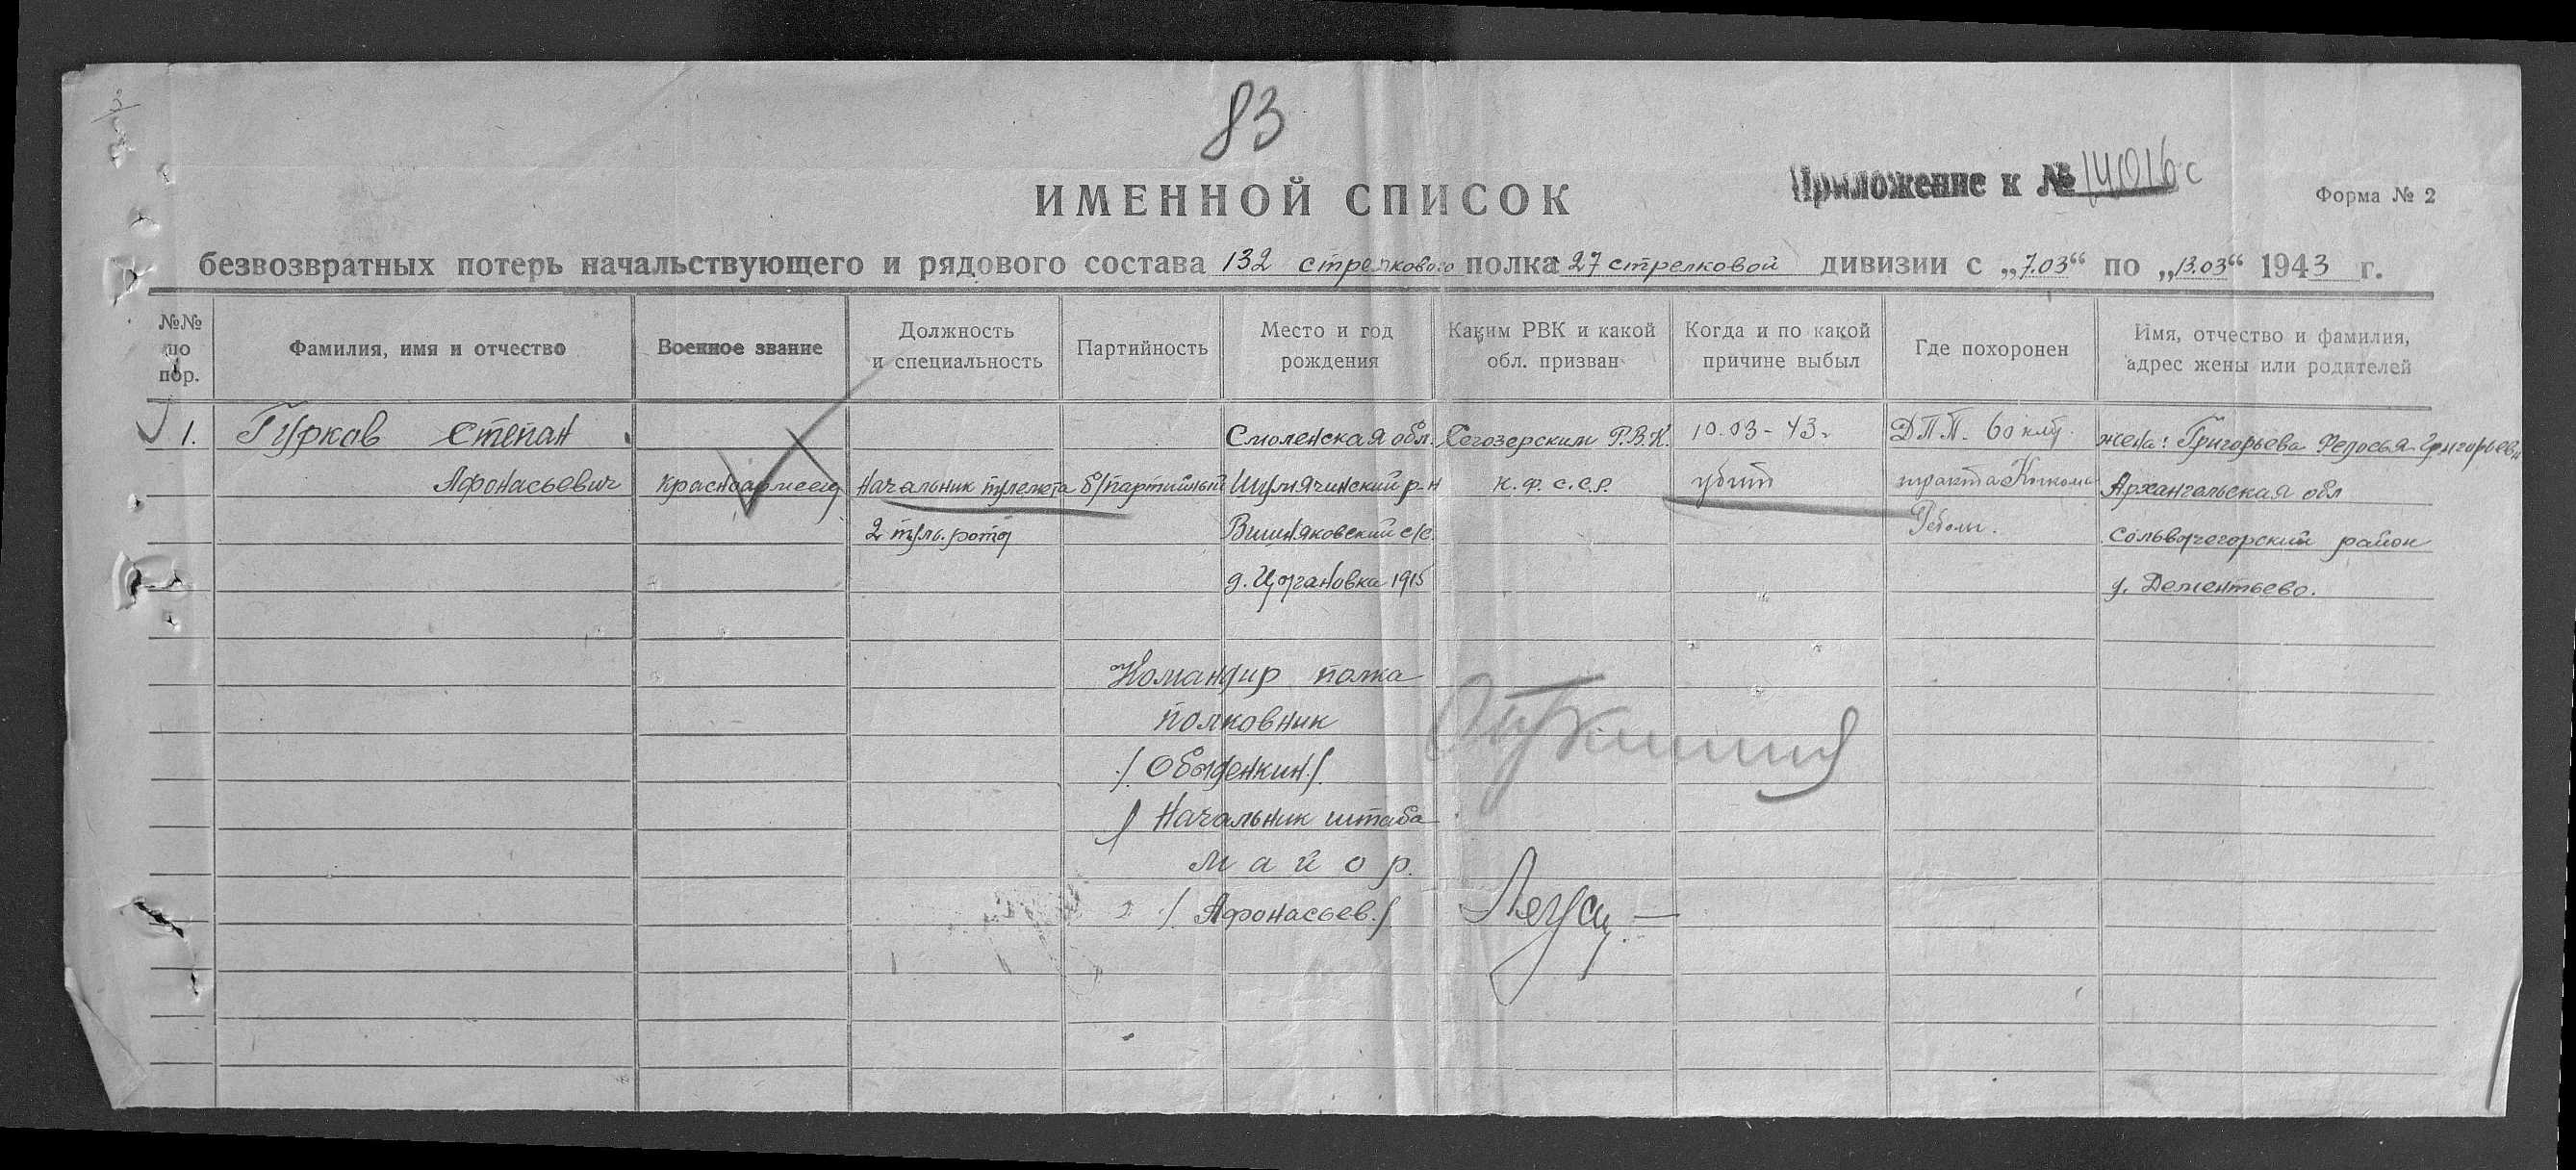 83
ИМЕННОЙ СПИСОК
Приложение к № 14016с
Форма № 2
безвозвратных потерь начальствующего и рядового состава 132 стрелкового полка 27 стрелковой дивизии с „7.03“ по „13.03“ 1943 г.
№№ по пор.
Фамилия, имя и отчество
Военное звание
Должность и специальность
Партийность
Место и год рождения
Каким РВК и какой обл. призван
Когда и по какой причине выбыл
Где похоронен
Имя, отчество и фамилия, адрес жены или родителей
1. Гурков Степан Смоленская обл. Сегозерским Р.В.К. 10.03-43г. ДПП. 60 клм. жена: Григорьева Федосья Григорьевн
Афонасьевич красноармеец Начальник пулемета б/партийный Шумячинский р-н К.Ф.С.С.Р. убит тракта Кочкома Архангельская обл
2 пуль. роты Вишняковский с/с. Реболы. Сольвычегорский район
д. Цыгановка 1915 д. Дементьево.
Командир полка
полковник
/Обыденкин/.
Начальник штаба
майор.
/Афонасьев./